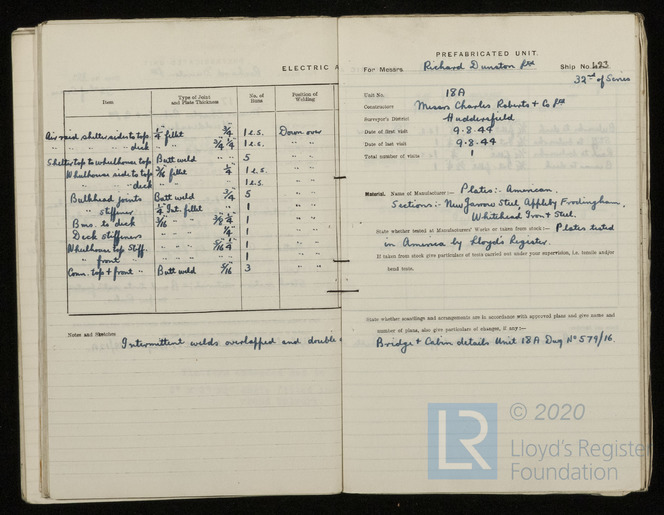 ELECTRIC A
Item
Type of Joint and Plate Thickness
No. of Runs
Position of Welding
Air raid shelter sides to top 1/4 fillet 3/4 1 e.s. Down over
" " " " deck " 3/4 1/4 1 e.s. " "
Shelter top to wheelhouse top Butt weld " " 5 " "
Wheelhouse side to top 3/16 fillet 1/4 1 e.s. " "
" " deck " " 1 e.s. " "
Bulkhead joints Butt weld 3/4 5 " "
" stiffener 1/4 Int. fillet " " 1 " "
Bms. to deck 3/16 " " 1 " "
Deck stiffeners " " 1/4 1 " "
Wheelhouse top Stiff. " " 1 " "
" front " " " 1 " "
Conn. top + front " Butt weld 5/16 3 " "
Notes and Sketches
Intermittent welds overlapped and double
PREFABRICATED UNIT.
For Messrs Richard Dunston Ltd Ship No. 423
32nd of Series
Unit No. 18A
Constructors Messrs Charles Roberts & Co Ltd
Surveyor's District Huddersfield
Date of first visit 9.8.44
Date of last visit 9.8.44
Total number of visits 1
Material. Name of Manufacturer:— Plates:- American.
Sections:- New Jarrow Steel, Appleby Frodingham,
Whitehead Iron & Steel.
State whether tested at Manufacturers' Works or taken from stock:— Plates tested
in America by Lloyd's Register.
If taken from stock give particulars of tests carried out under your supervision, i.e. tensile and/or
bend tests.
State whether scantlings and arrangements are in accordance with approved plans and give name and
number of plans, also give particulars of changes, if any:—
Bridge + Cabin details Unit 18A Dwg No 579/16.
LR
© 2020
Lloyd's Register
Foundation